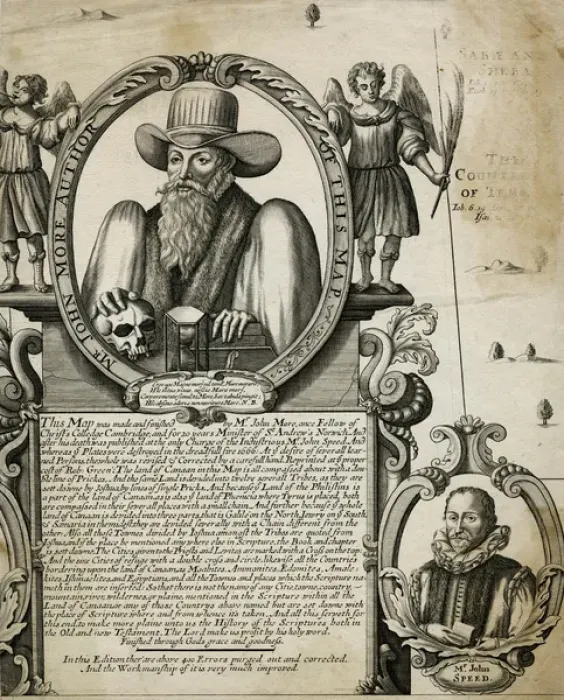 Mr. JOHN MORE AUTHOR OF THIS MAP.
SABÆ AN
SHEBA
THE
COUNTRE
OF
This Map was made and finished by Mr. John More, once Fellow of
Christs Colledge Cambridge, and for 20 years Minister of St. Andrew's Norwich. And
after his death was published at the only Charge of the Industrious Mr. John Speed. And
whereas ye Plates were destroyed in the dreadfull fire 1666: At ye desire of severall lear-
ned Persons, the whole was revised & Corrected by a carefull hand, Reprinted at ye proper
cost of Rob: Green: The land of Canaan in this Map is all compassed about with a dou-
ble line of Pricks. And the same Land is devided into twelve severall Tribes, as they are
sett downe by Joshua, by lines of single Pricks. And because ye Land of the Philistins is
a part of the land of Canaan, as is also ye land of Phenicia where Tyrus is placed, both
are compassed in their severall places with a small chain. And further because ye whole
land of Canaan is devided into three parts, that is Galile on the North, Jewry on ye South,
& Samaria in the midst, they are devided severally with a Chain different from the
other. Also all those Townes devided by Joshua amongst the Tribes are quoted from
Joshua, and if the place be mentioned any where else in Scripture, the Book and chapter
is sett downe. The Cities given to the Priests and Levites are marked with a Cross on the top:
And the six Cities of refuge with a double cross and circle, likewise all the Countries
bordering upon the land of Canaan, as Moabites, Ammonites, Edomites, Amale-
kites, Ishmaelites, and Egyptians, and all the Townes and places which the Scripture na-
meth in them are inserted: So that there is not the name of any Citie, towne, country,
mountain, ring, wilderness, or plaine, mentioned in the Scripture within all the
Land of Canaan, or any of those Countrys above named but are set downe with
the place of Scripture where and from whence it's taken. And all this serveth for
this end, to make more plaine unto us the History of the Scriptures both in
the Old and new Testament. The Lord make us profit by his holy word.
Finished through Gods grace and goodness.
In this Edition ther are above 400 Errors purged out and corrected,
And the Workmanship of it is very much improved.
Mr. John
SPEED.